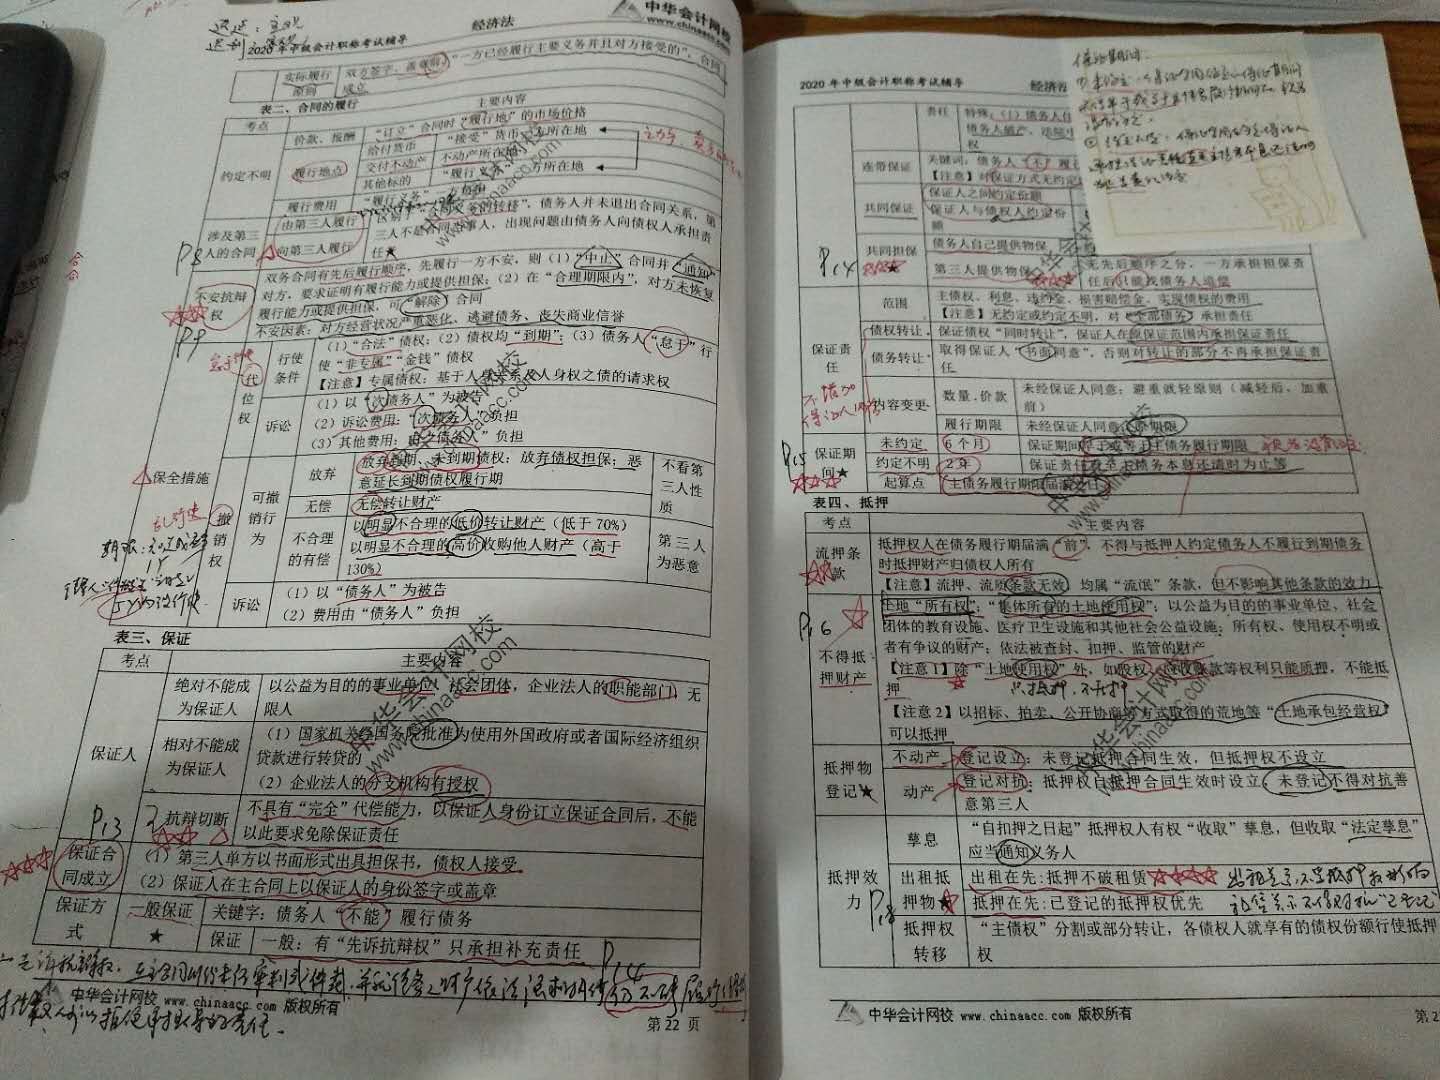 经济法
中华会计网校
www.chinaacc.com
2020 年中级会计职称考试辅导
实际履行原则
双方签字、盖章前，“一方已经履行主要义务并且对方接受的”，合同成立
表二、合同的履行
考点
主要内容
约定不明
价款、报酬
“订立”合同时“履行地”的市场价格
履行地点
给付货币
“接受”货币一方所在地
交付不动产
不动产所在地
其他标的
“履行义务”一方所在地
履行费用
“履行义务”一方负担
涉及第三人的合同
由第三人履行
向第三人履行
区别于“合同义务的转移”，债务人并未退出合同关系，第三人不是合同当事人，出现问题由债务人向债权人承担责任★
P8
不安抗辩权
双务合同有先后履行顺序，先履行一方不安，则（1）“中止”合同并“通知”
对方，要求证明有履行能力或提供担保；（2）在“合理期限内”，对方未恢复
履行能力或提供担保，可“解除”合同
不安因素：对方经营状况严重恶化、逃避债务、丧失商业信誉
P9
保全措施
代位权
行使条件
（1）“合法”债权；（2）债权均“到期”；（3）债务人“怠于”行
使“非专属”“金钱”债权
【注意】专属债权：基于人身关系及人身权之债的请求权
诉讼
（1）以“次债务人”为被告
（2）诉讼费用：“次债务人”负担
（3）其他费用：由“债务人”负担
撤销权
可撤销行为
放弃
放弃到期、未到期债权；放弃债权担保；恶
意延长到期债权履行期
不看第三人性质
无偿
无偿转让财产
不合理的有偿
以明显不合理的低价转让财产（低于 70%）
以明显不合理的高价收购他人财产（高于
130%）
第三人为恶意
诉讼
（1）以“债务人”为被告
（2）费用由“债务人”负担
表三、保证
考点
主要内容
保证人
绝对不能成为保证人
以公益为目的的事业单位、社会团体，企业法人的职能部门，无
限人
相对不能成为保证人
（1）国家机关经国务院批准为使用外国政府或者国际经济组织
贷款进行转贷的
（2）企业法人的分支机构有授权
P13
抗辩切断
不具有“完全”代偿能力，以保证人身份订立保证合同后，不能
以此要求免除保证责任
保证合同成立
（1）第三人单方以书面形式出具担保书，债权人接受。
（2）保证人在主合同上以保证人的身份签字或盖章
保证方式
一般保证
★
关键字：债务人“不能”履行债务
保证
一般：有“先诉抗辩权”只承担补充责任
P14
中华会计网校 www.chinaacc.com 版权所有
第 22 页
2020 年中级会计职称考试辅导
经济法
保证期间：
责任
特殊：（1）债务人住
债务人破产，法院中
连带保证
关键词：债务人“不”履行
【注意】对保证方式无约定
共同保证
保证人之间约定份额
保证人与债权人约定份
额
P14
共同担保
债务人自己提供物保
第三人提供物保
无先后顺序之分，一方承担担保责
任后可就找债务人追偿
保证责任
范围
主债权、利息、违约金、损害赔偿金、实现债权的费用
【注意】无约定或约定不明，对“全部债务”承担责任
债权转让
保证债权“同时转让”，保证人在原保证范围内承担保证责任
债务转让
取得保证人“书面同意”，否则对转让的部分不再承担保证责
任
内容变更
数量、价款
未经保证人同意：避重就轻原则（减轻后、加重
前）
履行期限
未经保证人同意：原期限
P15
保证期间★
未约定
6 个月
保证期间早于或等于主债务履行期限
约定不明
2 年
保证责任直至主债务本息还清时为止等
起算点
主债务履行期限届满之日
表四、抵押
考点
主要内容
流押条款
抵押权人在债务履行期届满“前”，不得与抵押人约定债务人不履行到期债务
时抵押财产归债权人所有
【注意】流押、流质条款无效，均属“流氓”条款，但不影响其他条款的效力
P16
不得抵押财产
土地“所有权”；“集体所有的土地使用权”；以公益为目的的事业单位、社会
团体的教育设施、医疗卫生设施和其他社会公益设施；所有权、使用权不明或
者有争议的财产；依法被查封、扣押、监管的财产
【注意 1】除“土地使用权”外，如股权、应收账款等权利只能质押，不能抵
押
【注意 2】以招标、拍卖、公开协商等方式取得的荒地等“土地承包经营权”
可以抵押
抵押物登记★
不动产
登记设立：未登记抵押合同生效，但抵押权不设立
动产
登记对抗：抵押权自抵押合同生效时设立，未登记不得对抗善
意第三人
抵押效力
孳息
“自扣押之日起”抵押权人有权“收取”孳息，但收取“法定孳息”
应当通知义务人
P18
出租抵押物★
出租在先：抵押不破租赁
抵押在先：已登记的抵押权优先
抵押权转移
“主债权”分割或部分转让，各债权人就享有的债权份额行使抵押
权
中华会计网校 www.chinaacc.com 版权所有